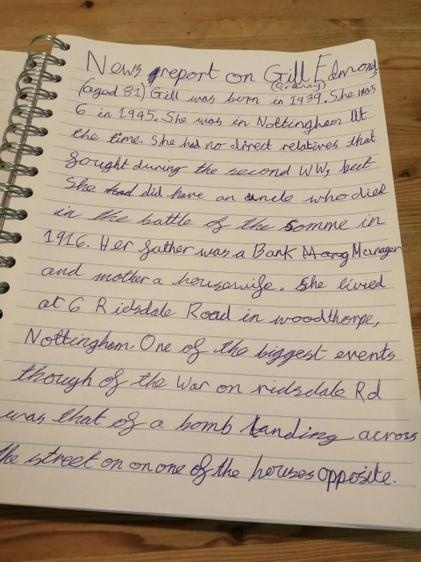 News report on Gill Edmond
(Granny)
(aged 81) Gill was born in 1939. She was
6 in 1945. She was in Nottingham at
the time. She had no direct relatives that
fought during the second WW, but
she had did have an uncle who died
in the battle of the Somme in
1916. Her father was a Bank Manager
and mother a housewife. She livied
at 6 Ridsdale Road in woodthorpe,
Nottingham. One of the biggest events
though of the War on ridsdale Rd
was that of a bomb landing across
the street on on one of the houses opposite.